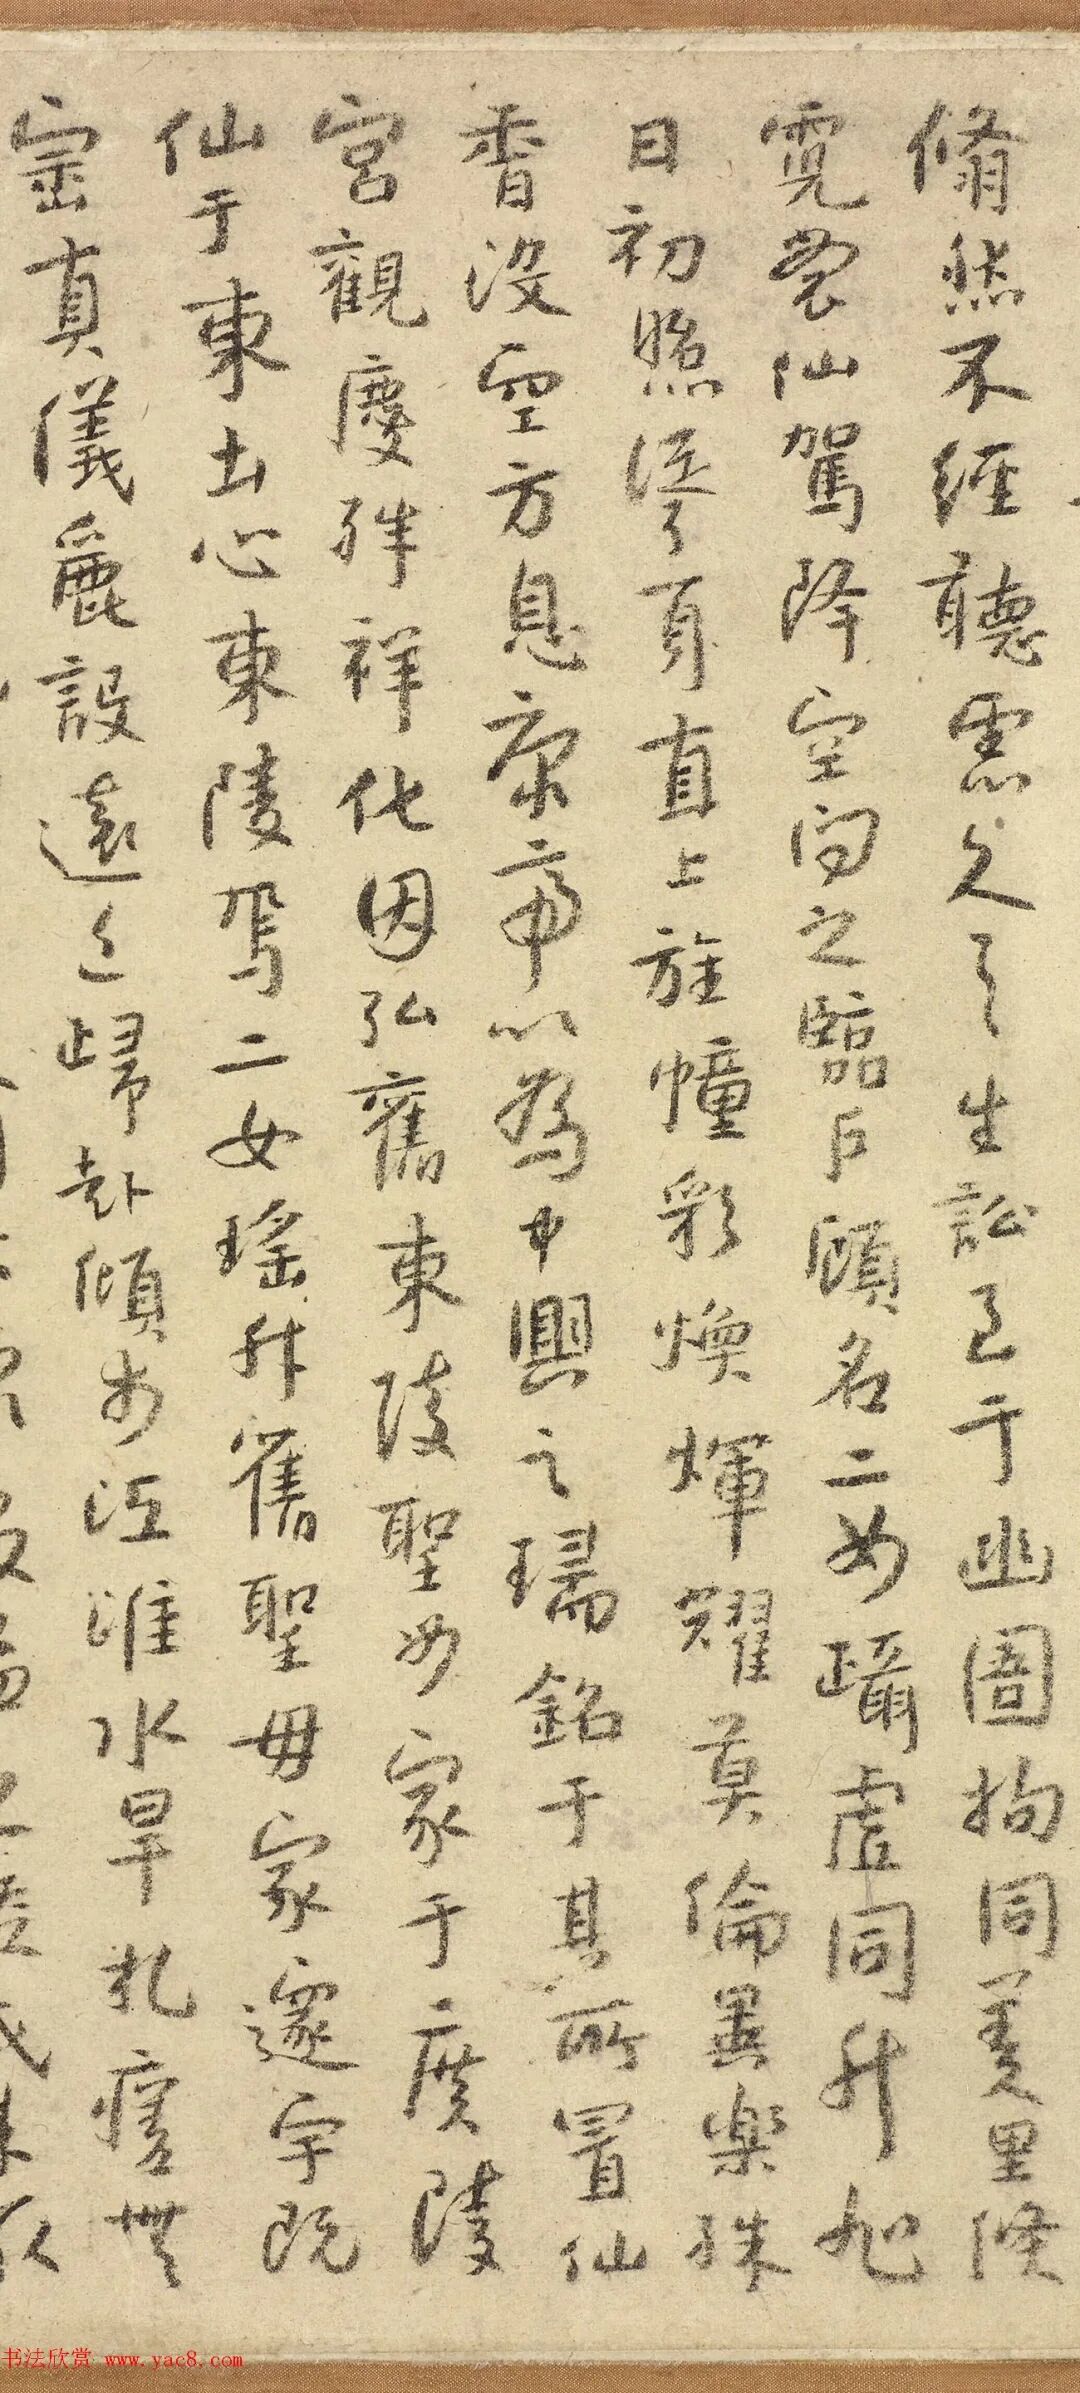 翛然不經聽慝久之生訟至于幽圄拘同羑里倏
霓裳仙駕降空向之臨戶顧名二女躡虛同升旭
日初照身直上旌幢彩煥輝耀莫倫異樂殊
香沒空方息康帝以為中興之瑞銘于其所置仙
宮觀慶殊祥化因弘舊東陵聖母家于廣陵
仙于東土心東陵焉二女瑤升舊聖毋家邃宇既
崇真儀麗設遠近歸赴傾江淮水旱札瘥無
书法欣赏 www.yac8.com